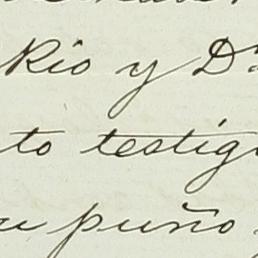 Rio y D.
to testig
su puño